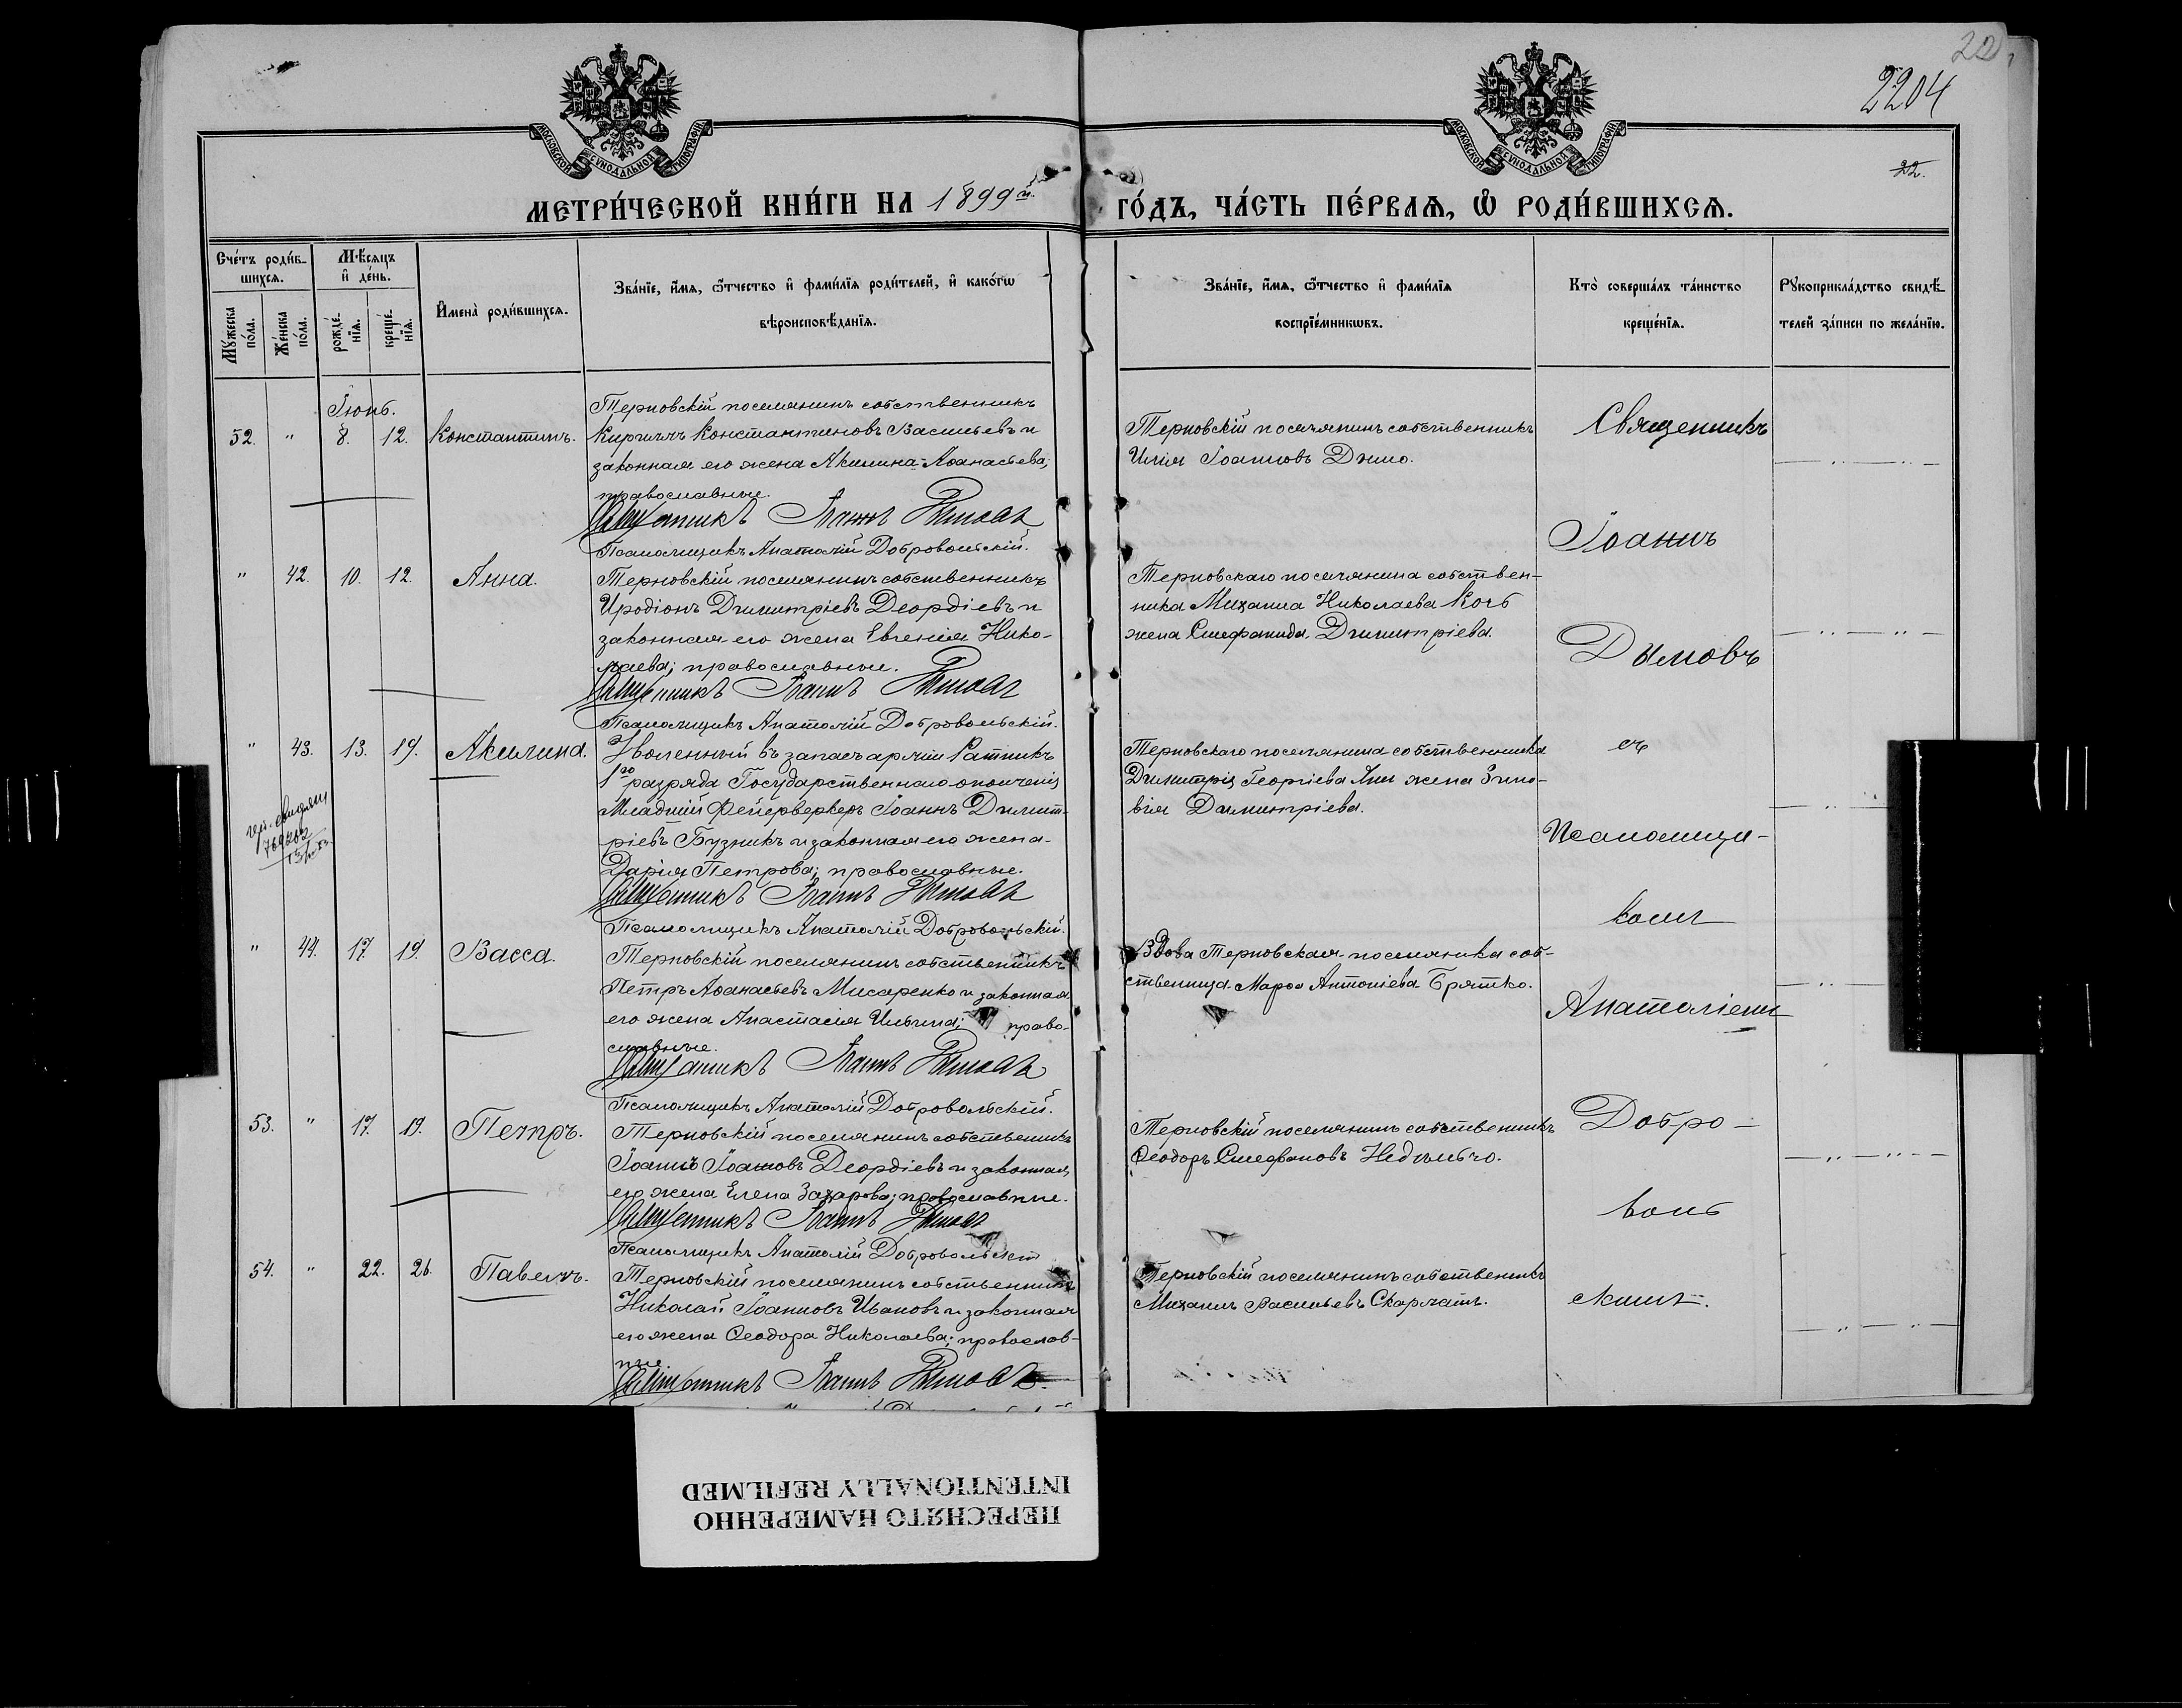 22
2204
22.
МОСКОВСКОЙ СѴНОДАЛЬНОЙ ТИПОГРАФІИ
МОСКОВСКОЙ СѴНОДАЛЬНОЙ ТИПОГРАФІИ
МЕТРИ́ЧЕСКОЙ КНИ́ГИ НА 1899й
ГО́ДЪ, ЧА́СТЬ ПЕ́РВАѦ, Ѽ РОДИ́ВШИХСѦ.
Счétъ роди́в-
шихсѧ.
Мѣ́сѧцъ
и҆ де́нь.
Мꙋ́жеска по́ла.
Же́нска по́ла.
рожде́нїѧ.
креще́нїѧ.
И҆мена̀ роди́вшихсѧ.
Зва́нїе, и҆́мѧ, ѻ҆́тчество и҆ фами́лїѧ роди́телей, и҆ како́гѡ
вѣроисповѣ́данїѧ.
Зва́нїе, и҆́мѧ, ѻ҆́тчество и҆ фами́лїѧ
воспрїе́мникѡвъ.
Кто̀ соверша́лъ та́инство
креще́нїѧ.
Рꙋкоприкла́дство свидѣ́-
телей за́писи по жела́нїю.
Іюнь.
52. " 8. 12. Константинъ.
Терновскій поселянинъ собственникъ
Кириллъ Константиновъ Васильевъ и
законная его жена Акилина Аѳанасьева;
православные.
Священникъ Іоаннъ Дымовъ
Псаломщикъ Анатолій Добровольскій.
Терновскій поселянинъ собственникъ
Илія Іоанновъ Димо.
" 42. 10. 12. Анна.
Терновскій поселянинъ собственникъ
Иродіонъ Димитріевъ Деордіевъ и
законная его жена Евгенія Нико-
лаева; православные.
Священникъ Іоаннъ Дымовъ
Псаломщикъ Анатолій Добровольскій.
Терновскаго поселянина собствен-
ника Михаила Николаева Кочь
жена Стефанида Димитріева.
" 43. 13. 19. Акилина.
Уволенный въ запасъ арміи Ратникъ
1го разряда Государственнаго ополченія
Младшій Фейерверкеръ Іоаннъ Димит-
ріевъ Бузникъ и законная его жена
Дарія Петрова; православные.
Священникъ Іоаннъ Дымовъ
Псаломщикъ Анатолій Добровольскій.
Терновскаго поселянина собственника
Димитрія Георгіева жена Зино-
вія Димитріева.
" 44. 17. 19. Васса.
Терновскій поселянинъ собственникъ
Петръ Аѳанасьевъ Мисаренко и законная
его жена Анастасія Ильина; право-
славные.
Священникъ Іоаннъ Дымовъ
Псаломщикъ Анатолій Добровольскій.
Вдова Терновская поселянка соб-
ственница Марѳа Антоніева Братко.
53. " 17. 19. Петръ.
Терновскій поселянинъ собственникъ
Іоаннъ Іоанновъ Деордіевъ и законная
его жена Елена Захарова; православные.
Священникъ Іоаннъ Дымовъ
Псаломщикъ Анатолій Добровольскій
Терновскій поселянинъ собственникъ
Ѳеодоръ Стефановъ Недѣлько.
54. " 22. 26. Павелъ.
Терновскій поселянинъ собственникъ
Николай Іоанновъ Ивановъ и законная
его жена Ѳеодора Николаева; православ-
ные.
Священникъ Іоаннъ Дымовъ
Терновскій поселянинъ собственникъ
Михаилъ Васильевъ Скарлатъ.
Священникъ
Іоаннъ
Дымовъ
съ
Псаломщи-
комъ
Анатоліемъ
Добро-
воль
скимъ.
ПЕРЕСНЯТО НАМЕРЕННО
INTENTIONALLY REFILMED